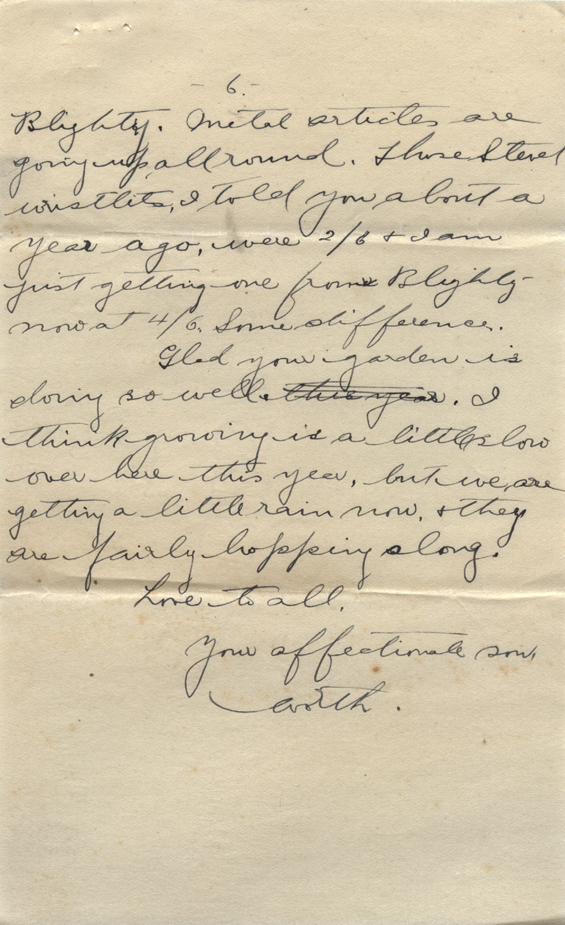 - 6. -
Blighty. Metal articles are
going up all round. Those Steel
wristlets, I told you about a
year ago, were 2/6 & I am
just getting one from Blighty
now at 4/6. Some difference.
Glad your garden is
doing so well. this year. I
think growing is a little slow
over here this year, but we are
getting a little rain now, & they
are fairly hopping along.
Love to all.
Your affectionate son,
Worth.